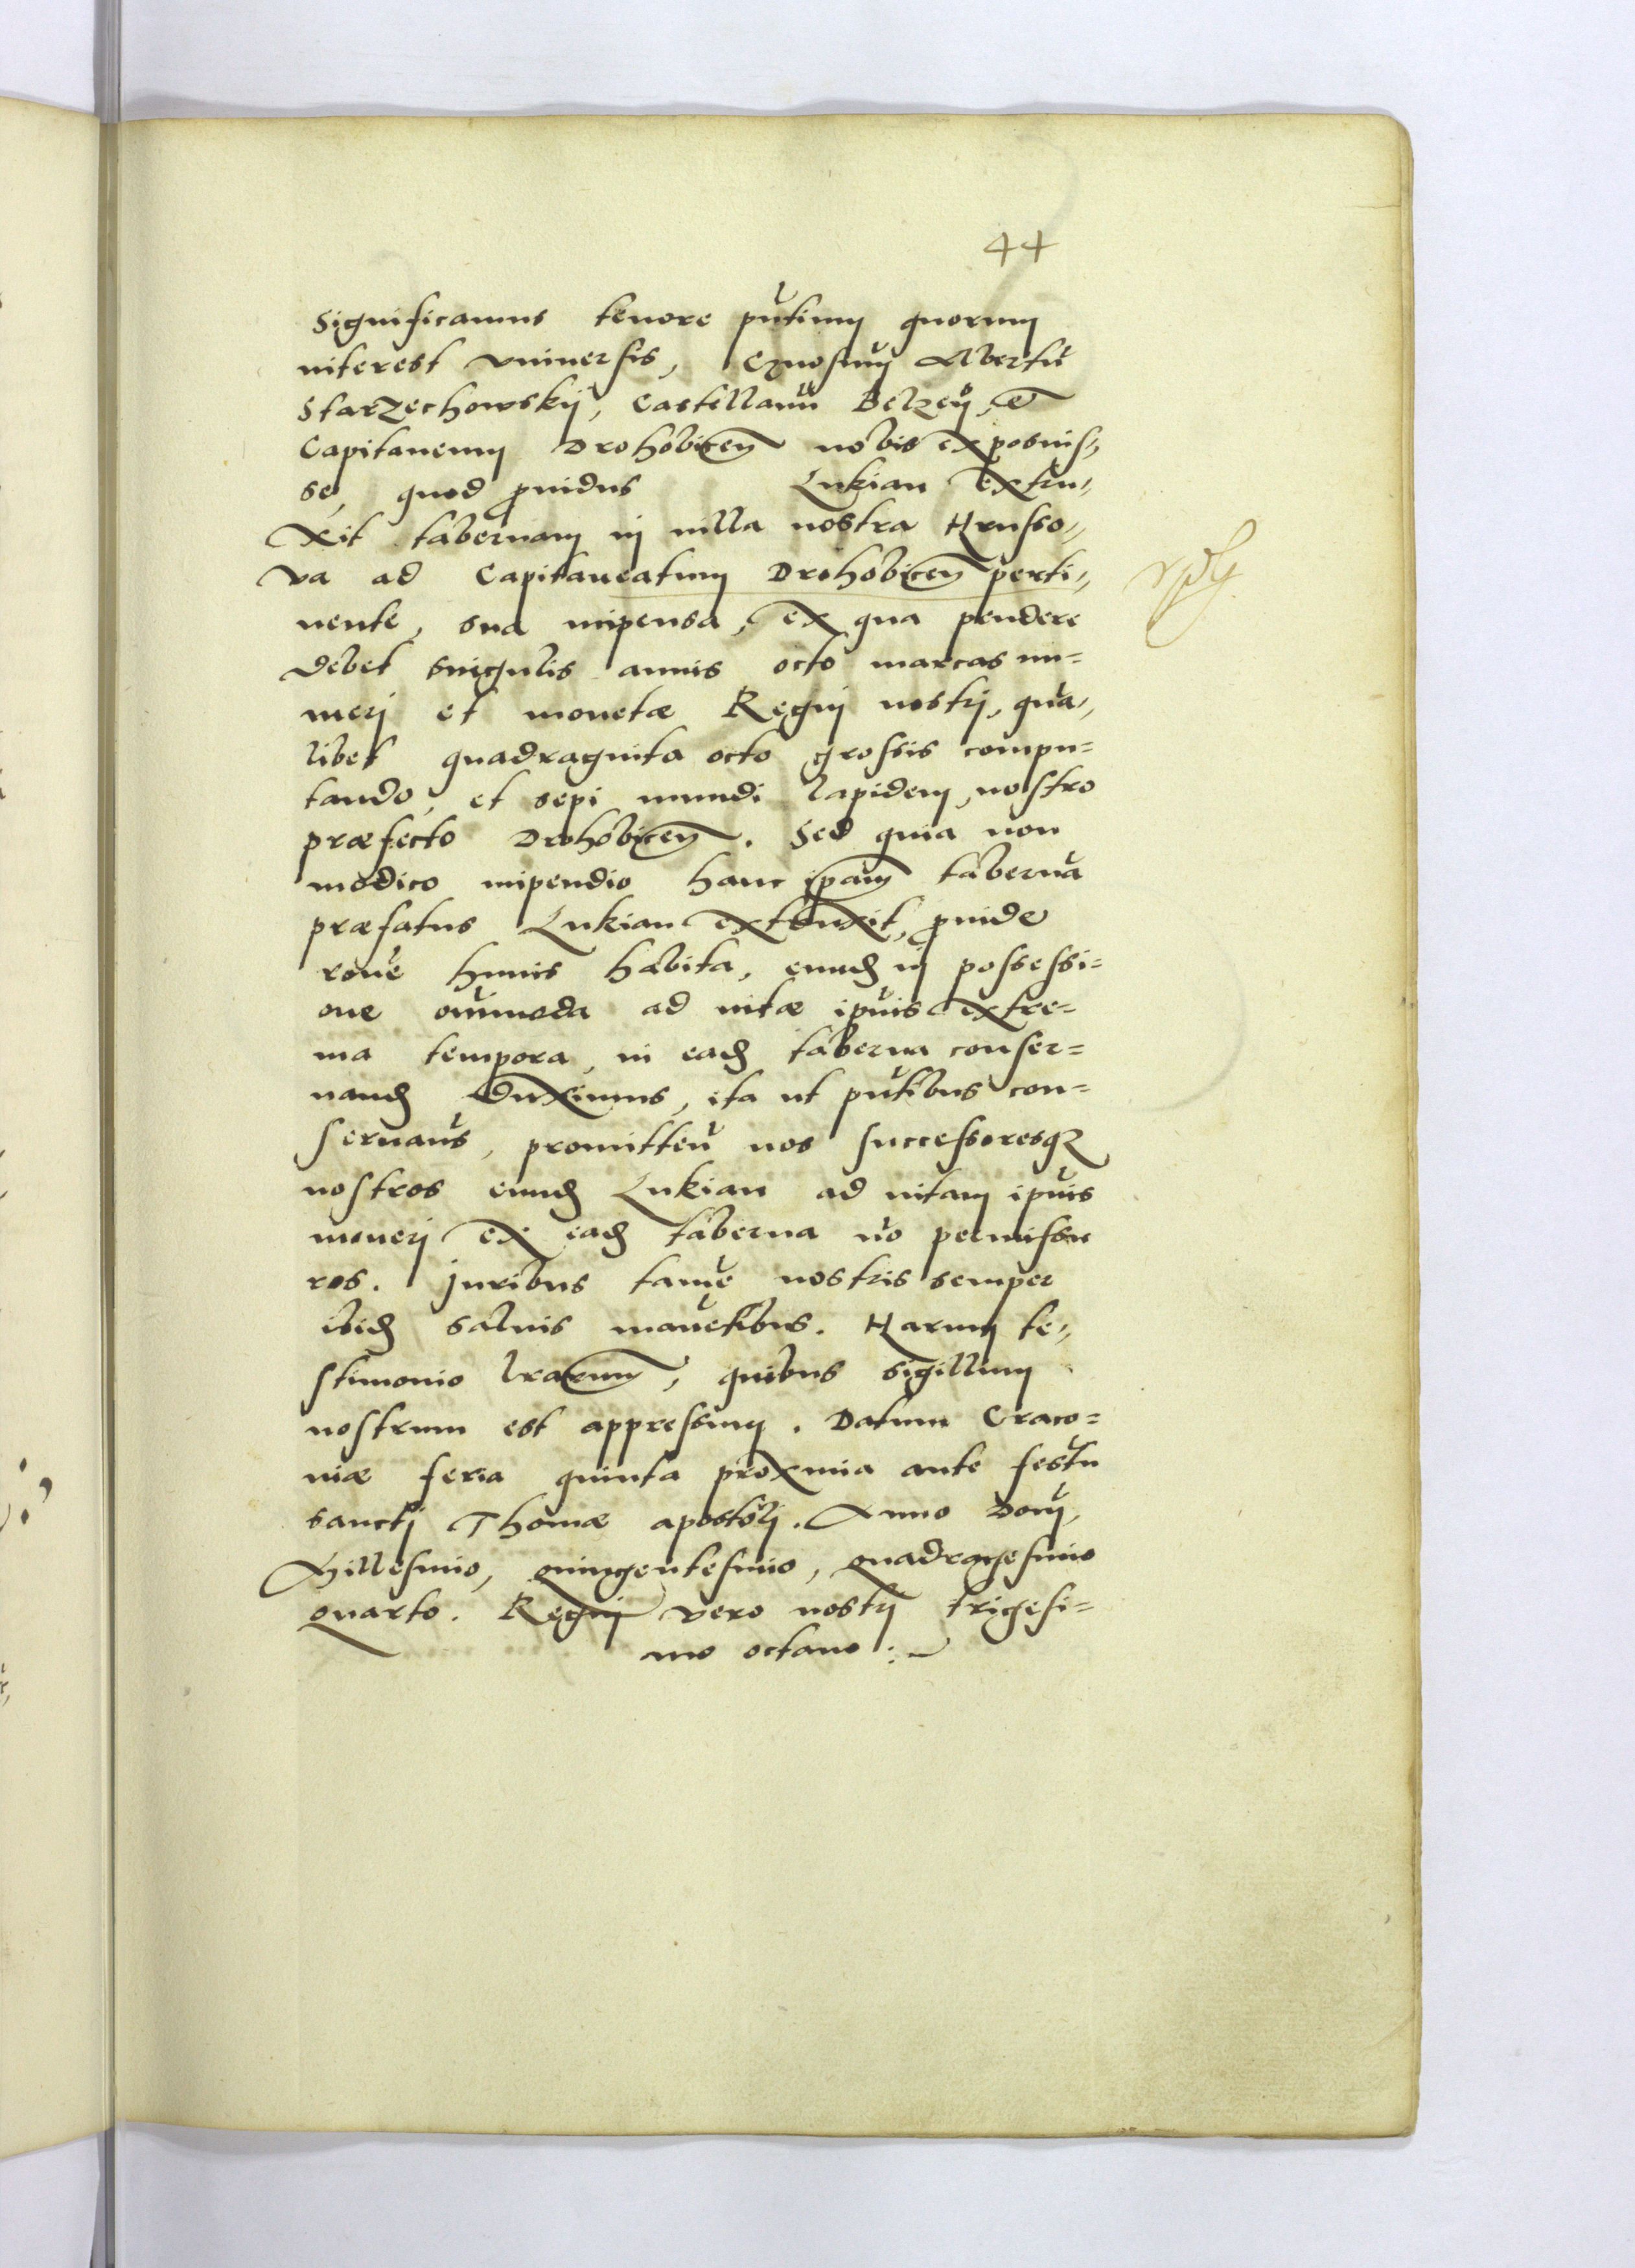 44
Significamus tenore pñtium quorum
interest vniuersis, Gnosum Albertũ
Starzechowskij, Castellanũ Belzeñ, et
Capitaneum Drohobiceñ nobis exposuis„
se, quod ꝓuidus Lukian extru„
xit tabernam in uilla nostra Hrusso„
va ad Capitaneatum Drohobiceñ perti„
nente, sua impensa, ex qua pendere
debet singulis annis octo marcas nu=
meri et monetæ Regni nostri, qua„
libet quadraginta octo grossis compu=
tando, et sepi mundi lapidem, nostro
præfecto Drohobiceñ. Sed quia non
modico impendio hanc ipsam tabernã
præfatus Lukian extruxit, ꝓinde
rõne huius habita, eund in possessi=
one om̃moda ad uitæ ip̃ius extre=
ma tempora, in ead taberna conser=
uand duximus, ita ut pñtibus con=
seruam̃s, promitteñ nos successoresqȝ
nostros eund Lukian ad uitam ip̃ius
moueri ex ead taberna nõ permissu
ros. Juribus tamẽ nostris semper
ibid saluis manẽtibus. Harum te„
stimonio lrarum, quibus sigillum
nostrum est appressum. Datum Craco=
uiæ feria quinta proxima ante festũ
sancti Thomæ apostoli. Anno Dom̃i,
Millesimo, quingentesimo, quadragesimo
quarto. Regni vero nostri trigesi=
mo octauo :~